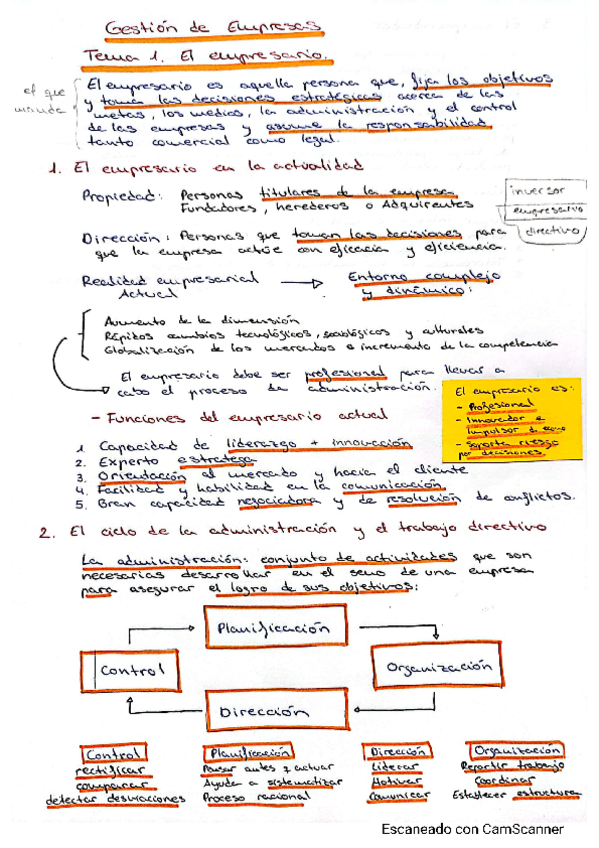 Gestión de Empresas
Tema 1. El empresario.
el que
manda
El empresario es aquella persona que, fija los objetivos
y toma las decisiones estratégicas acerca de las
metas, los medios, la administración y el control
de las empresas y asume la responsabilidad
tanto comercial como legal.
1. El empresario en la actualidad
Propiedad: Personas titulares de la empresa
Fundadores, herederos o Adquirentes
inversor
empresario
directivo
Dirección: Personas que toman las decisiones para
que la empresa actúe con eficacia y eficiencia.
Realidad empresarial
Actual
Entorno complejo
y dinámico:
Aumento de la dimensión
Rápidos cambios tecnológicos, sociológicos y culturales
Globalización de los mercados e incremento de la competencia
El empresario debe ser profesional para llevar a
cabo el proceso de administración.
El empresario es:
- Profesional
- Innovador e
impulsor d
- Soporta riesgo
por decisiones.
- Funciones del empresario actual
1 Capacidad de liderazgo + innovación
2. Experto estratega
3. Orientación al mercado y hacia el cliente
4. Facilidad y habilidad en la comunicación
5. Gran capacidad negociadora y de resolución de conflictos.
2. El ciclo de la administración y el trabajo directivo
La administración: conjunto de actividades que son
necesarias desarrollar en el seno de una empresa
para asegurar el logro de sus objetivos:
Planificación
Control
Organización
Dirección
Control
rectificar
comparar
detectar desviaciones
Planificación
Pensar antes d actuar
Ayuda a sistematizar
Proceso racional
Dirección
Liderar
Motivar
Comunicar
Organización
Repartir trabajo
Coordinar
Establecer estructura
Escaneado con CamScanner